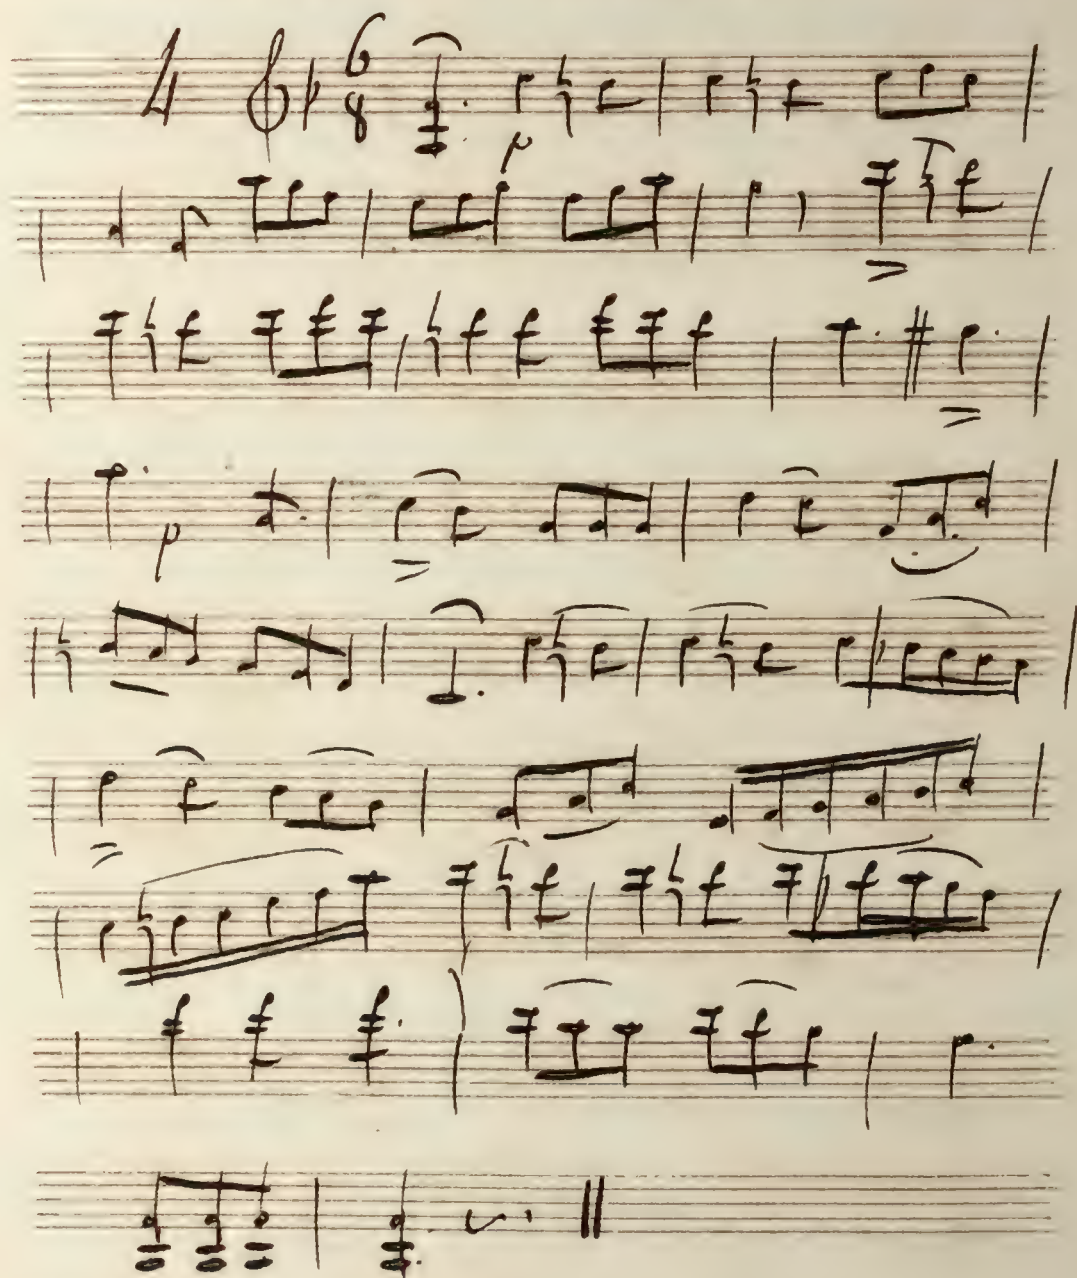 4 6
8
p
p